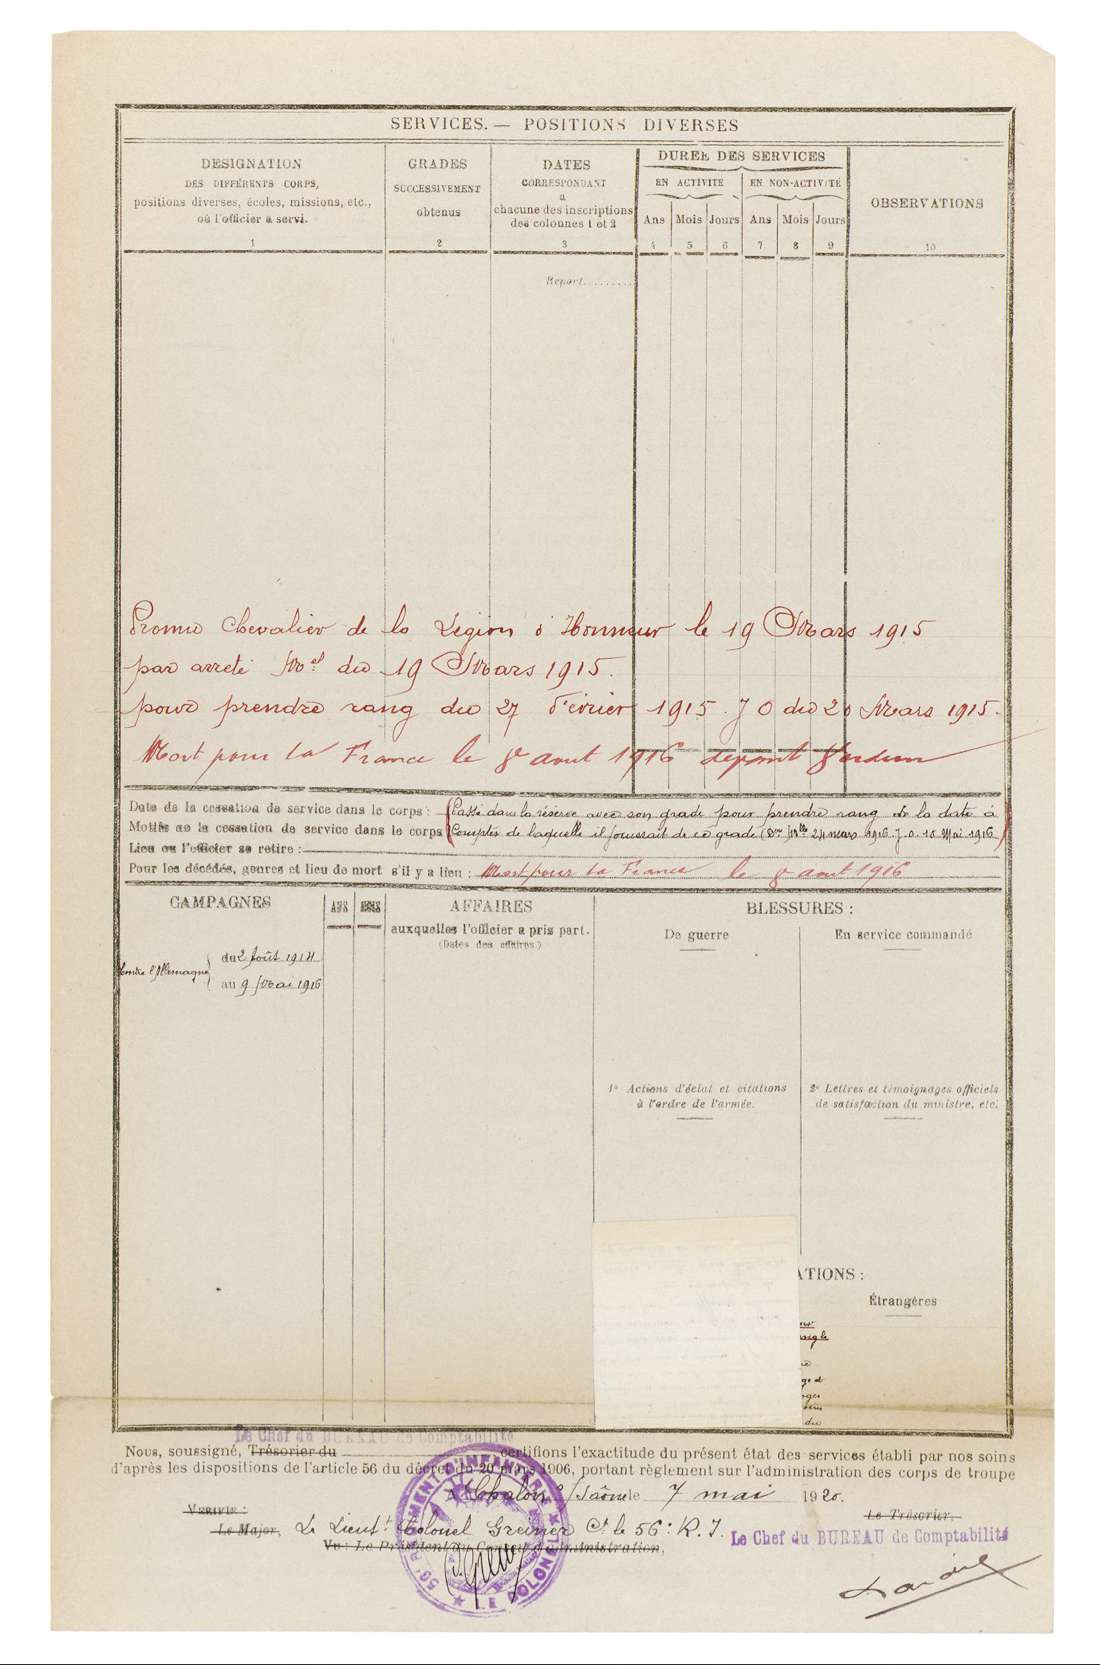 SERVICES. — POSITIONS DIVERSES
DESIGNATION
DES DIFFÉRENTS CORPS,
positions diverses, écoles, missions, etc.,
où l'officier a servi.
1
GRADES
SUCCESSIVEMENT
obtenus
2
DATES
CORRESPONDANT
à
chacune des inscriptions
des colonnes 1 et 2
3
DUREE DES SERVICES
EN ACTIVITE
EN NON-ACTIVITÉ
Ans Mois Jours Ans Mois Jours
4 5 6 7 8 9
OBSERVATIONS
10
Report........
Promu Chevalier de la Légion d'Honneur le 19 Mars 1915
par arrêté Mel du 19 Mars 1915.
pour prendre rang du 27 Février 1915. J O du 20 Mars 1915.
Mort pour la France le 8 aout 1916 devant Verdun
Date de la cessation de service dans le corps :
Motifs de la cessation de service dans le corps
Passé dans la réserve avec son grade pour prendre rang de la date à
Compter de laquelle il jouissait de ce grade 24 mars 1916. J.O. 10 Mai 1916
Lieu où l'officier se retire :
Pour les décédés, genres et lieu de mort s'il y a lien : Mort pour la France le 8 aout 1916
CAMPAGNES
ANS MOIS
Contre l'Allemagne
du 2 Août 1914
au 9 Mai 1916
AFFAIRES
auxquelles l'officier a pris part.
(Dates des affaires.)
BLESSURES :
De guerre
En service commandé
1º Actions d'éclat et citations
à l'ordre de l'armée.
2º Lettres et témoignages officiels
de satisfaction du ministre, etc.
ATIONS :
Étrangères
Le Chef du BUREAU de Comptabilité
Nous, soussigné, Trésorier du certifions l'exactitude du présent état des services établi par nos soins
d'après les dispositions de l'article 56 du décret du 20 mars 1906, portant règlement sur l'administration des corps de troupe
A Chalon s/Saône le 7 mai 1920.
VERIFIE :
Le Major, Le Lieut.t Colonel Greiner Ct le 56e R.I.
Vu : Le Président du Conseil d'administration,
Le Trésorier.
Le Chef du BUREAU de Comptabilité
RÉGIMENT D'INFANTERIE
LE COLONEL